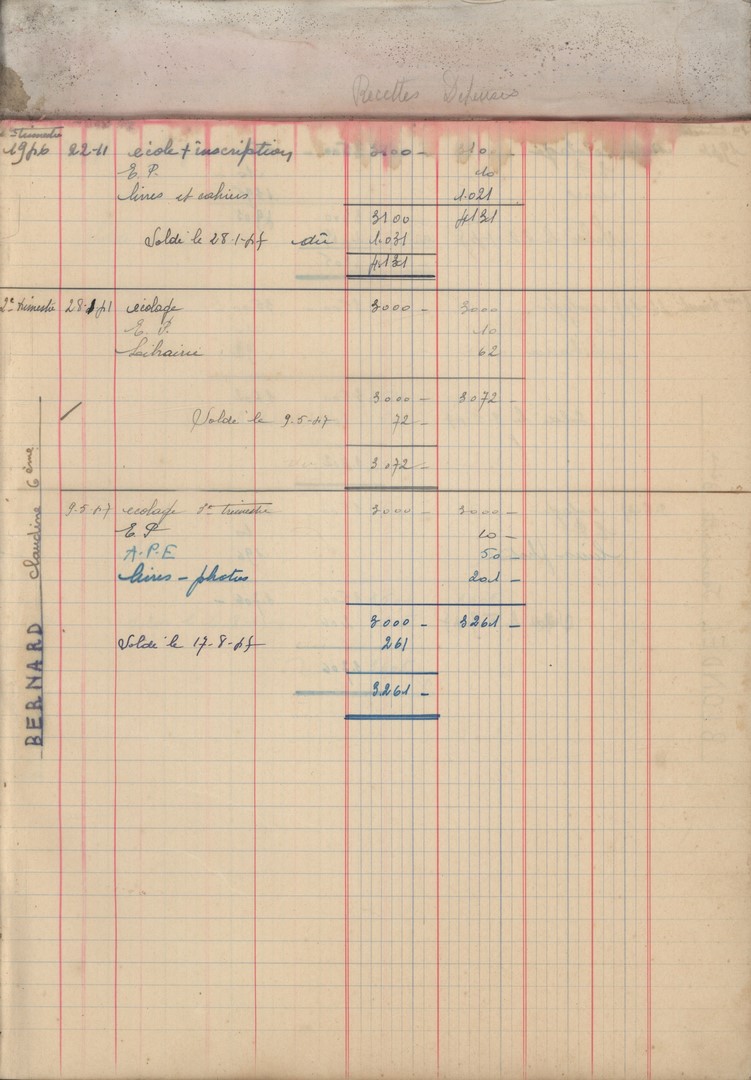 Recettes Dépenses
1er trimestre
1956 22-11 école + inscription 3100 - 3100 -
E.P. 10
livres et cahiers 1.021
3100 4131
Soldé le 28-1-57 dû 1.031
4131
2e trimestre 28-1-57 écolage 3000 - 3000
E.P. 10
Librairie 62
3000 - 3072 -
Soldé le 9.5-57 72 -
3.072 -
9.5-57 écolage 3e trimestre 3000 - 3000 -
E.P 10 -
A.P.E 50 -
livres - photos 201 -
3000 - 3261 -
Soldé le 17-8-57 261
3.261 -
BERNARD Claudine 6ème